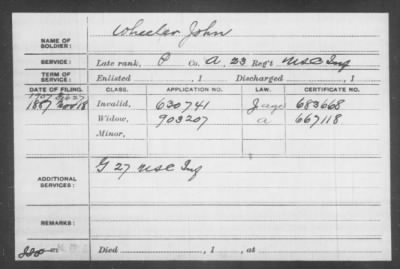 NAME OF SOLDIER: Wheeler, John
SERVICE: Late rank, P Co. A, 23 Reg't Inf
TERM OF SERVICE: Enlisted , 1 Discharged , 1
DATE OF FILING. CLASS. APPLICATION NO. LAW. CERTIFICATE NO.
1887 Nov 18 Invalid, 630741 683668
1907 Widow, 903207 a 667118
Minor,
ADDITIONAL SERVICES: G 27 Inf
REMARKS:
Died , 1 , at